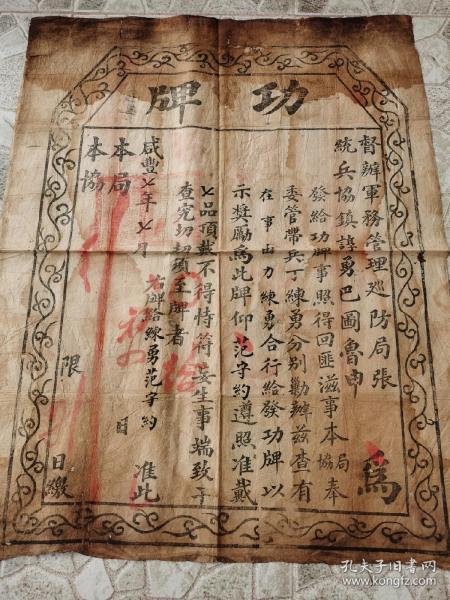 功牌
督辦軍務管理巡防局張
統兵協鎮譁勇巴圖魯申
為
發給功牌事照得回匪滋事本局協奉
委管帶兵丁練勇分别勦辦茲查有
在事出力練勇合行給發功牌以
示奬勵為此牌仰范字約遵照准戴
七品頂戴不得恃符妄生事端致于
查究切切須至牌者
右牌給練勇范字約 准此
咸豐七年七月 日
本局
本協
限 日繳
孔夫子旧书网
www.kongfz.com